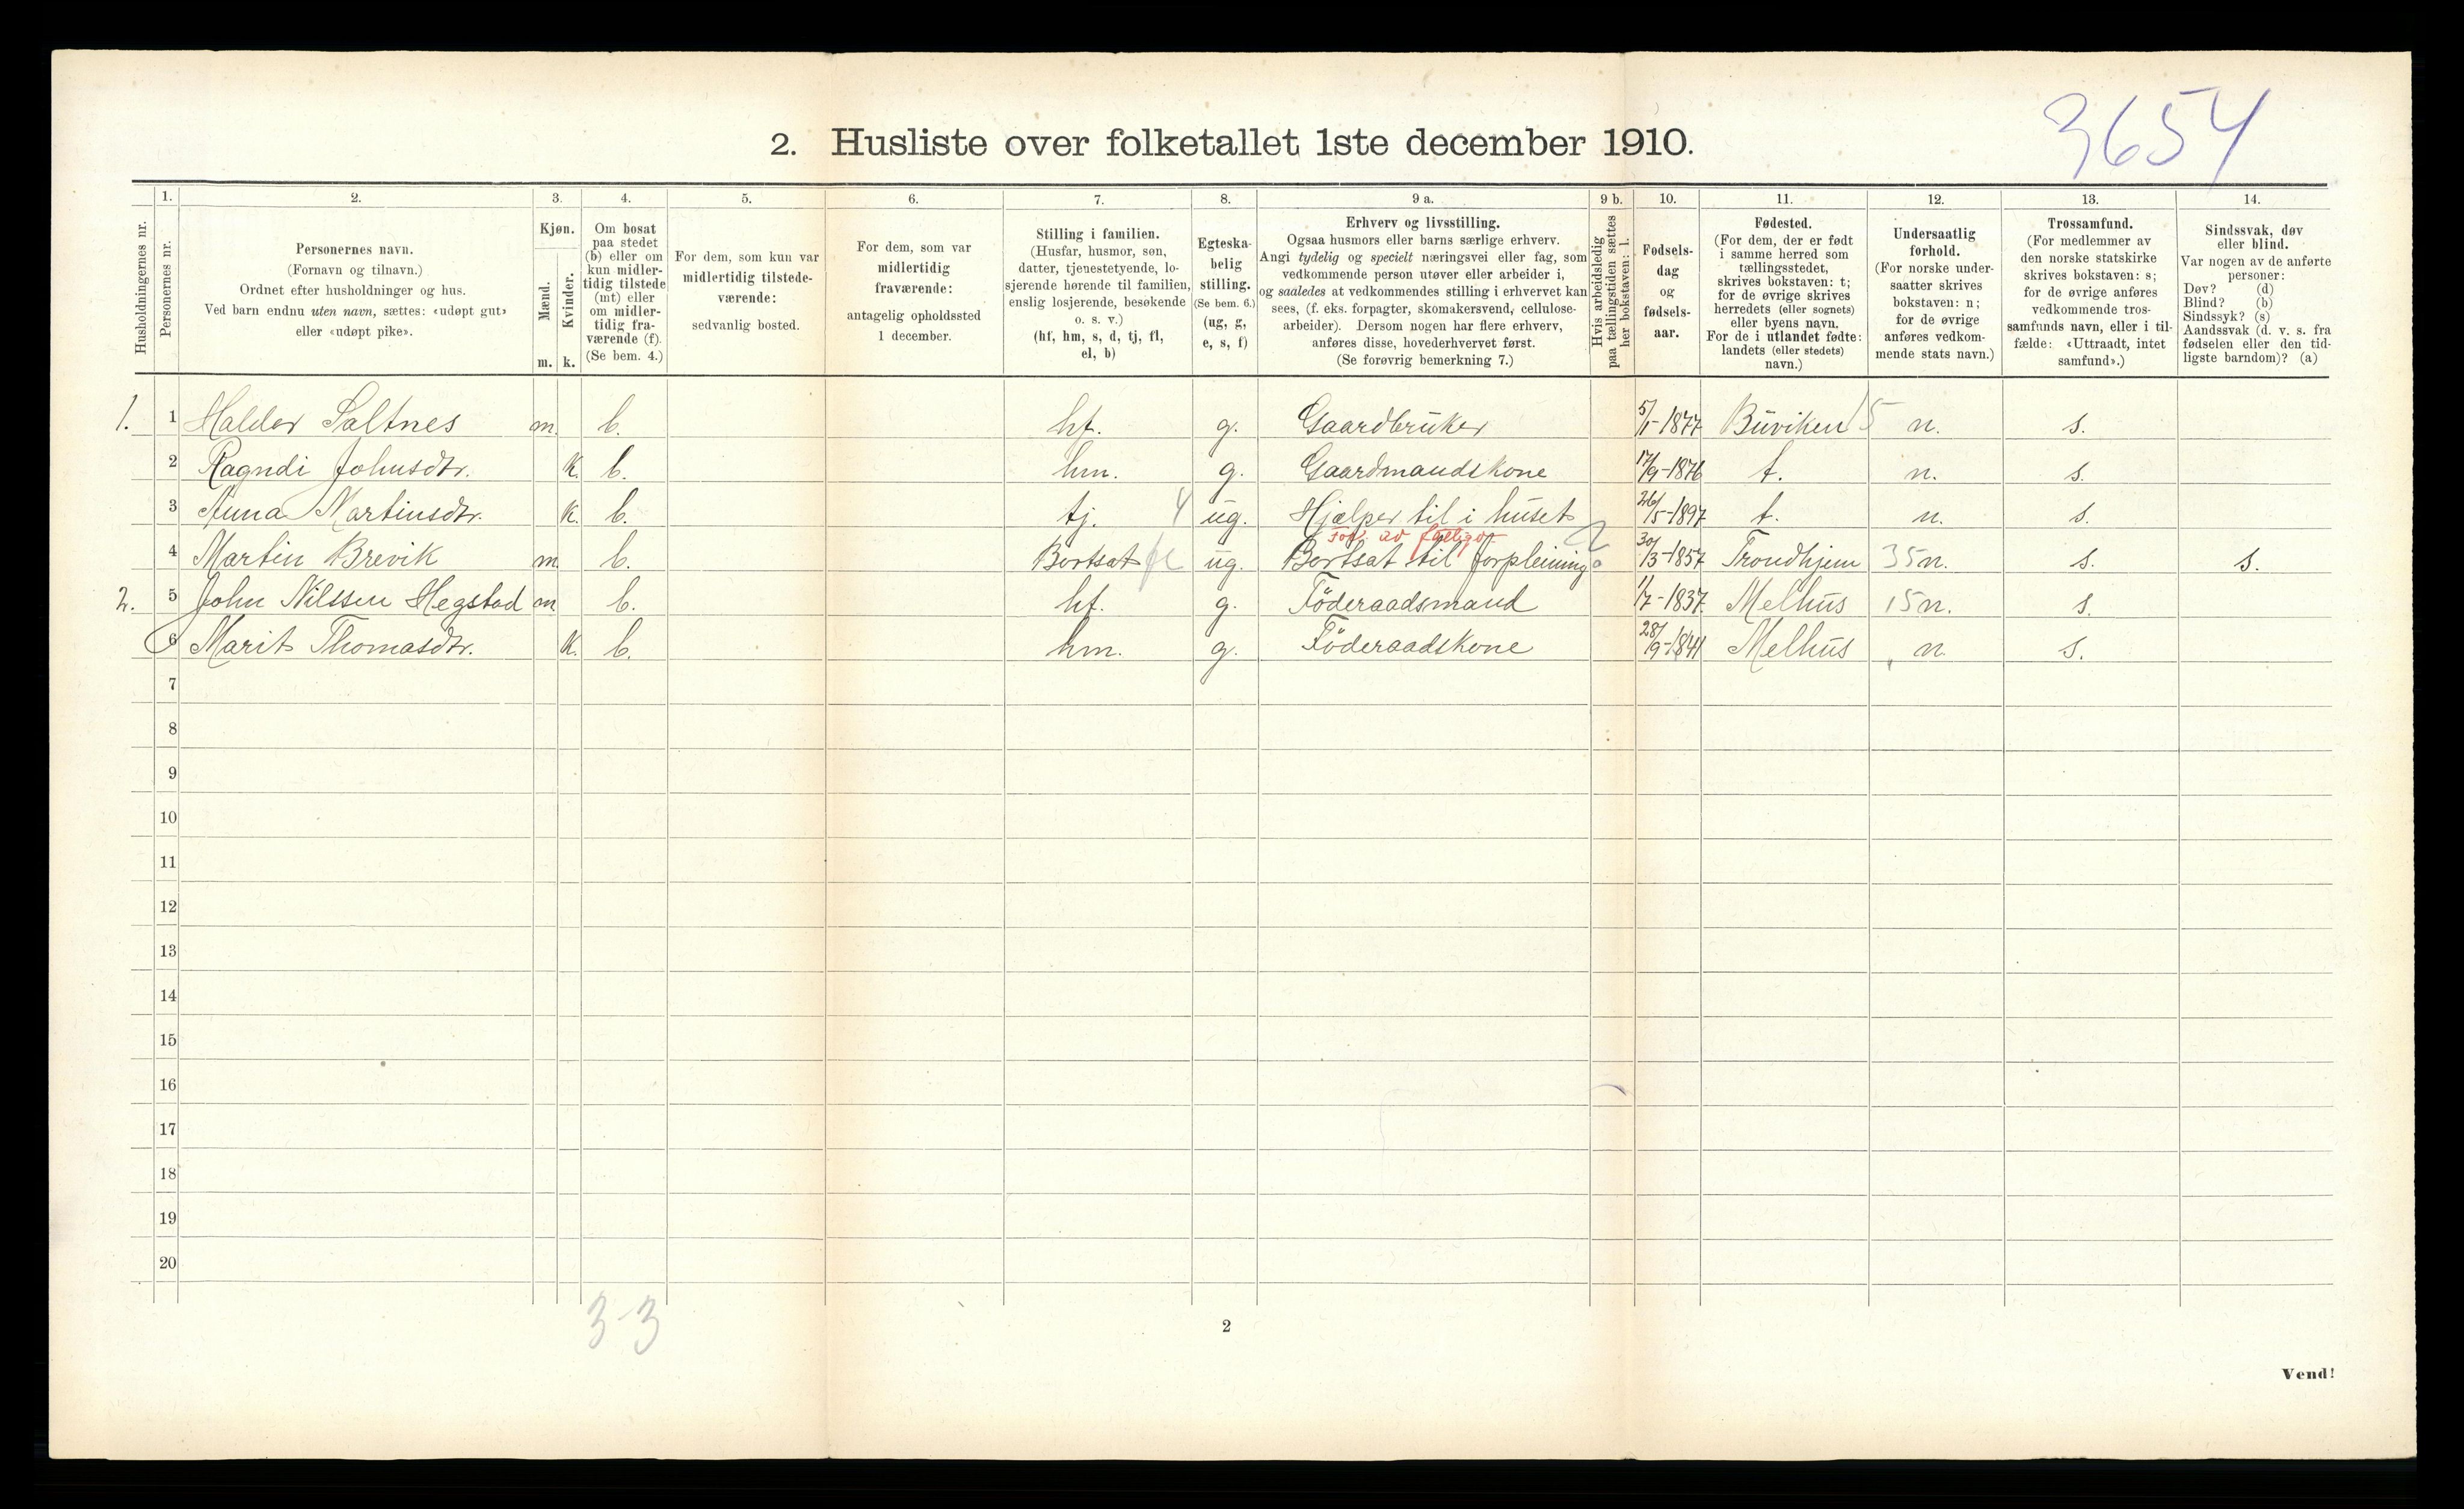 3654
2. Husliste over folketallet 1ste december 1910.
Husholdningernes nr.
1.
Personernes nr.
2.
Personernes navn.
(Fornavn og tilnavn.)
Ordnet efter husholdninger og hus.
Ved barn endnu uten navn, sættes: «udøpt gut»
eller «udøpt pike».
3.
Kjøn.
Mænd.
m.
Kvinder.
k.
4.
Om bosat
paa stedet
(b) eller om
kun midler-
tidig tilstede
(mt) eller
om midler-
tidig fra-
værende (f).
(Se bem. 4.)
5.
For dem, som kun var
midlertidig tilstede-
værende:
sedvanlig bosted.
6.
For dem, som var
midlertidig
fraværende:
antagelig opholdssted
1 december.
7.
Stilling i familien.
(Husfar, husmor, søn,
datter, tjenestetyende, lo-
sjerende hørende til familien,
enslig losjerende, besøkende
o. s. v.)
(hf, hm, s, d, tj, fl,
el, b)
8.
Egteska-
belig
stilling.
(Se bem. 6.)
(ug, g,
e, s, f)
9 a.
Erhverv og livsstilling.
Ogsaa husmors eller barns særlige erhverv.
Angi tydelig og specielt næringsvei eller fag, som
vedkommende person utøver eller arbeider i,
og saaledes at vedkommendes stilling i erhvervet kan
sees, (f. eks. forpagter, skomakersvend, cellulose-
arbeider). Dersom nogen har flere erhverv,
anføres disse, hovederhvervet først.
(Se forøvrig bemerkning 7.)
9 b.
Hvis arbeidsledig
paa tællingstiden sættes
her bokstaven: l.
10.
Fødsels-
dag
og
fødsels-
aar.
11.
Fødested.
(For dem, der er født
i samme herred som
tællingsstedet,
skrives bokstaven: t;
for de øvrige skrives
herredets (eller sognets)
eller byens navn.
For de i utlandet fødte:
landets (eller stedets)
navn.)
12.
Undersaatlig
forhold.
(For norske under-
saatter skrives
bokstaven: n;
for de øvrige
anføres vedkom-
mende stats navn.)
13.
Trossamfund.
(For medlemmer av
den norske statskirke
skrives bokstaven: s;
for de øvrige anføres
vedkommende tros-
samfunds navn, eller i til-
fælde: «Uttraadt, intet
samfund».)
14.
Sindssvak, døv
eller blind.
Var nogen av de anførte
personer:
Døv? (d)
Blind? (b)
Sindssyk? (s)
Aandssvak (d. v. s. fra
fødselen eller den tid-
ligste barndom)? (a)
1. 1 Haldor Saltnes m. b. hf. g. Gaardbruker 5/1-1877 Buviken 15 n. s.
2 Ragndi Johnsdtr. k. b. hm. g. Gaardmandskone 17/9-1876 t. n. s.
3 Anna Martinsdtr. k. b. tj. 4 ug. Hjælper til i huset 26/5-1897 t. n. s.
Fors. av fattigv.
4 Martin Brevik m b. Bortsat fl ug. Bortsat til forpleining 30/3-1857 Trondhjem 35 n. s. s.
2. 5 John Nilssen Hegstad m b. hf. g. Föderaadsmand 1/7-1837 Melhus 15 n. s.
6 Marit Thomasdtr. k. b. hm. g. Föderaadskone 28/9-1841 Melhus n s.
7
8
9
10
11
12
13
14
15
16
17
18
19
20
3-3
2
Vend!